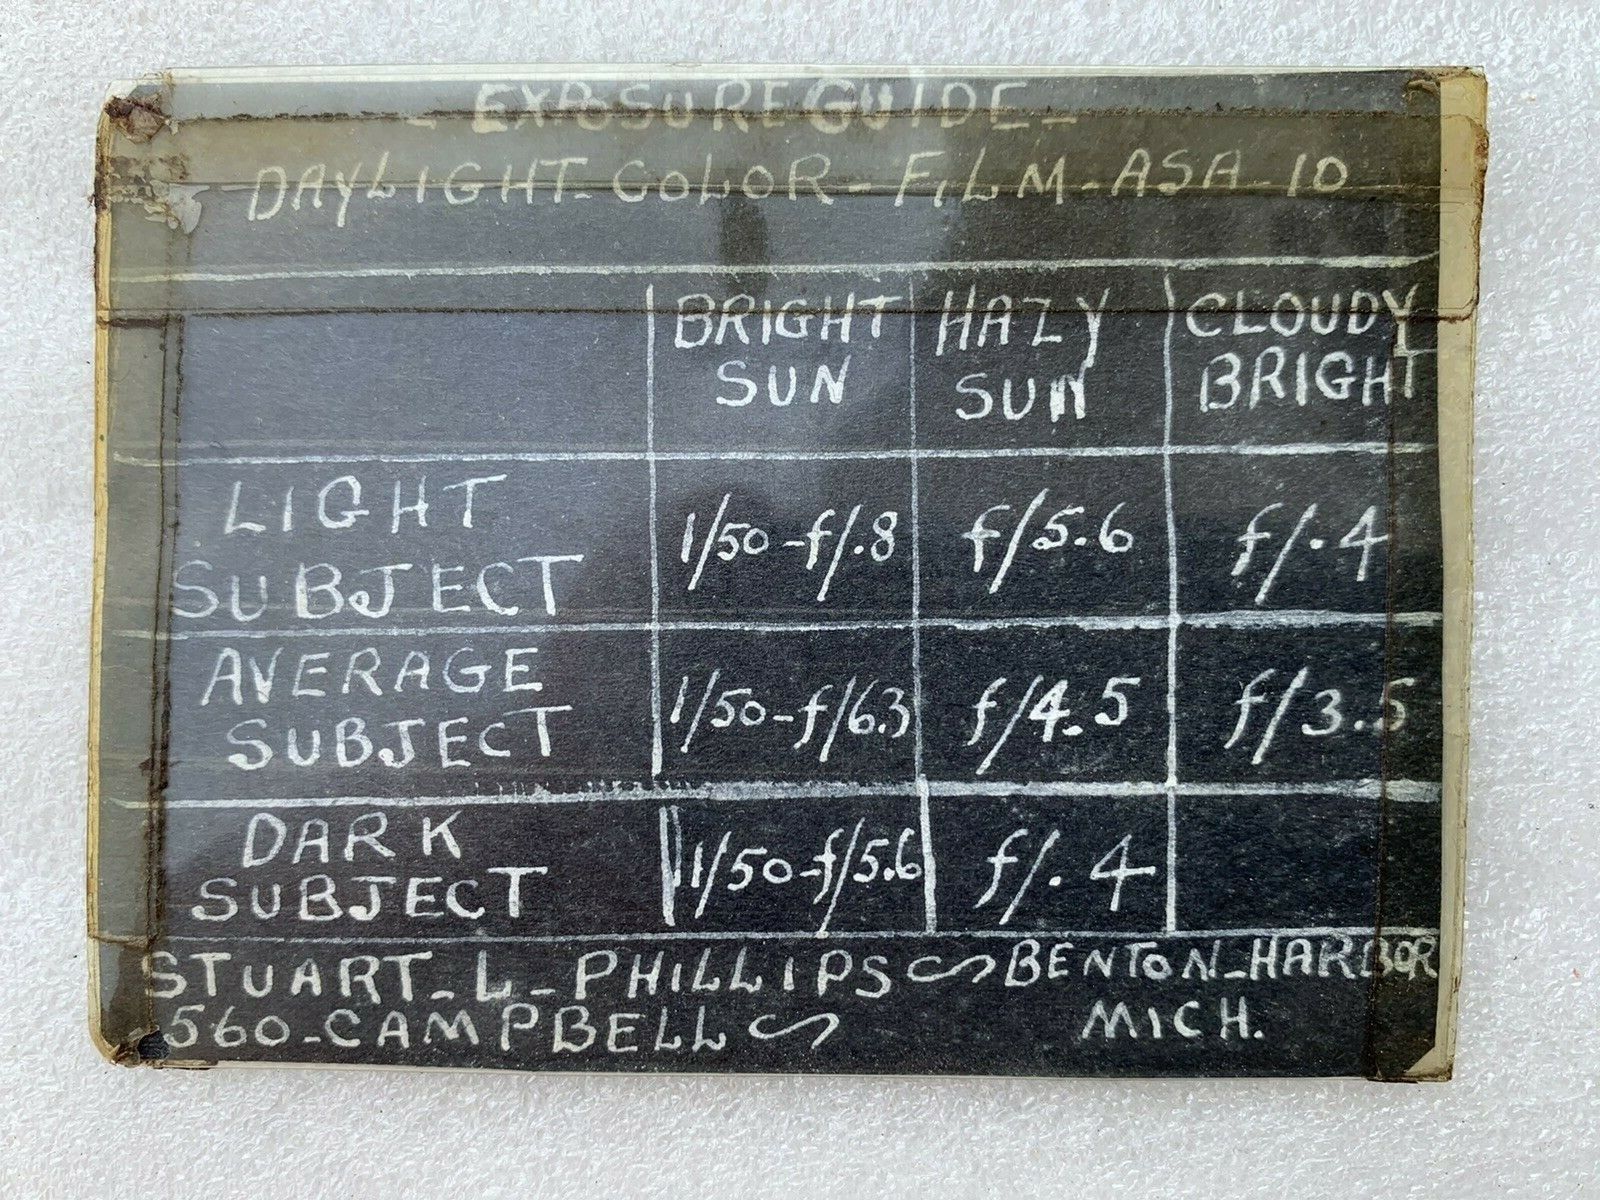 - EXPOSURE GUIDE -
DAYLIGHT - COLOR - FILM - ASA - 10
BRIGHT SUN HAZY SUN CLOUDY BRIGHT
LIGHT SUBJECT 1/50 - f/.8 f/5.6 f/.4
AVERAGE SUBJECT 1/50 - f/6.3 f/4.5 f/3.5
DARK SUBJECT 1/50 - f/5.6 f/.4
STUART - L - PHILLIPS ~ BENTON - HARBOR
560 - CAMPBELL ~ MICH.